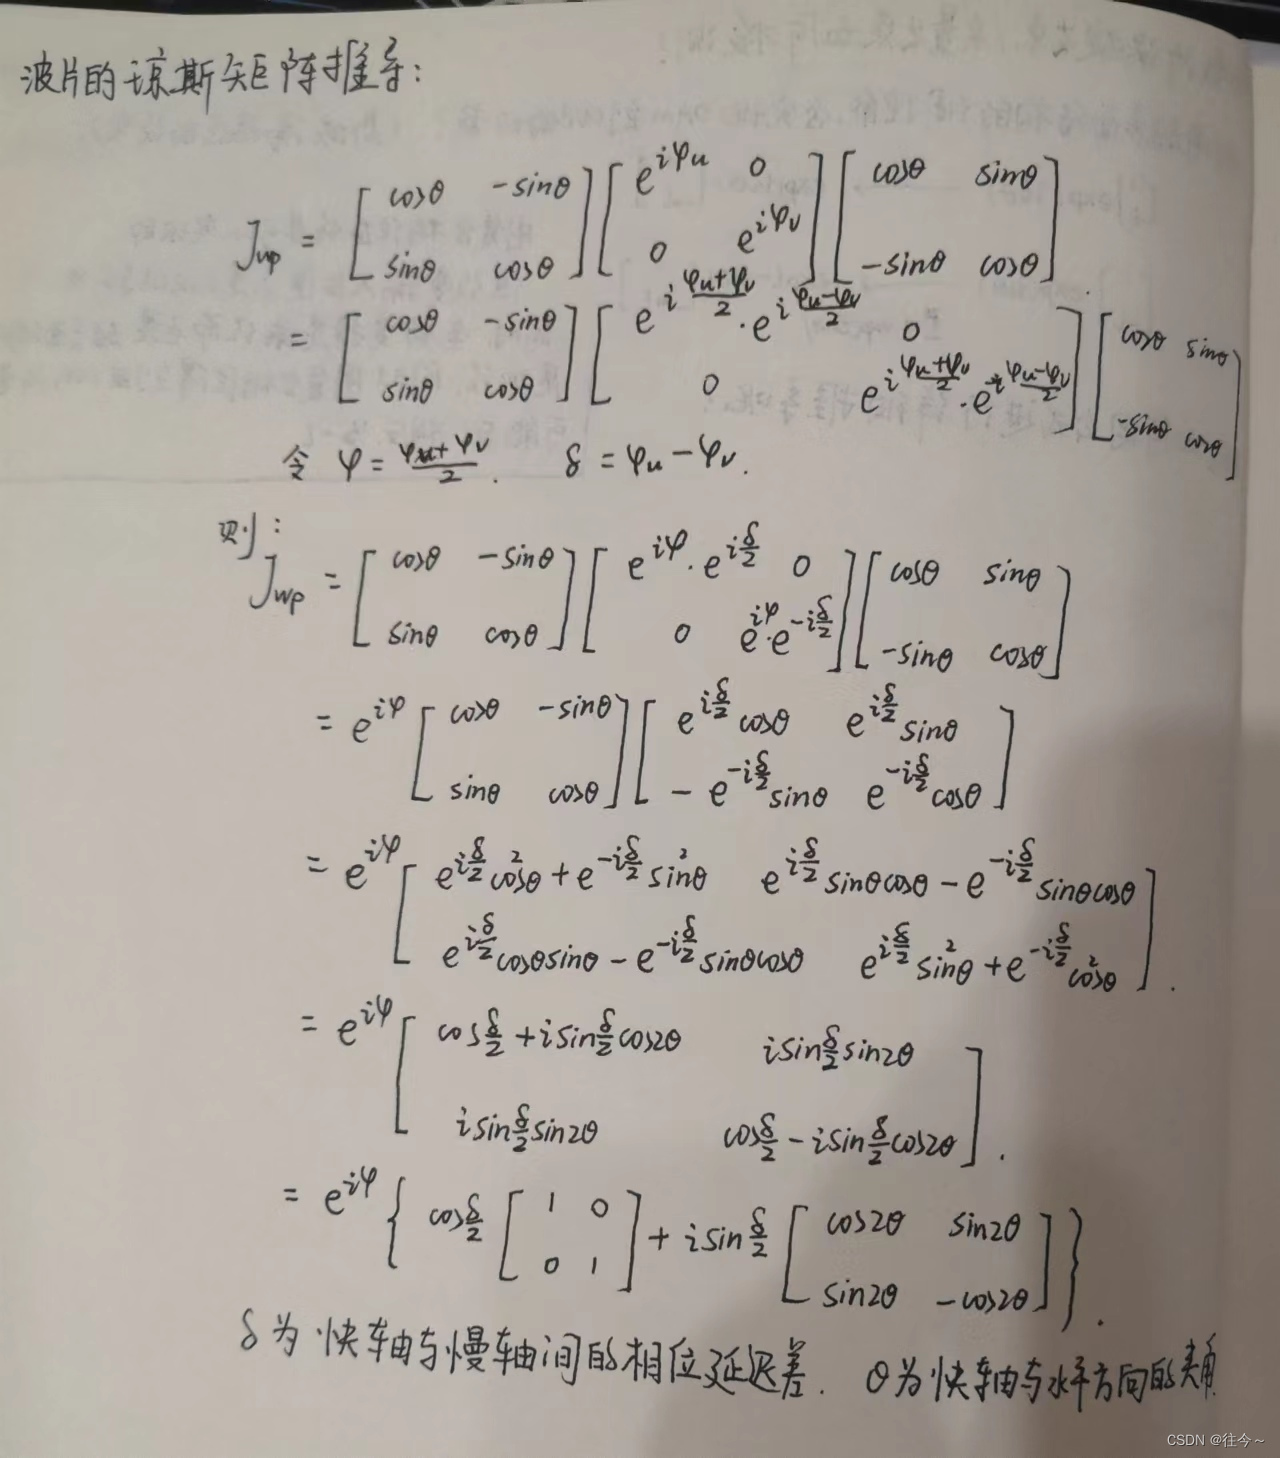 波片的琼斯矩阵推导：
J_wp = [cosθ -sinθ; sinθ cosθ] [e^{iφu} 0; 0 e^{iφv}] [cosθ sinθ; -sinθ cosθ].
= [cosθ -sinθ; sinθ cosθ] [e^{i(φu+φv)/2}·e^{i(φu-φv)/2} 0; 0 e^{i(φu+φv)/2}·e^{-i(φu-φv)/2}] [cosθ sinθ; -sinθ cosθ]
令 φ = (φu+φv)/2. δ = φu-φv.
则：
J_wp = [cosθ -sinθ; sinθ cosθ] [e^{iφ}·e^{iδ/2} 0; 0 e^{iφ}·e^{-iδ/2}] [cosθ sinθ; -sinθ cosθ]
= e^{iφ} [cosθ -sinθ; sinθ cosθ] [e^{iδ/2}cosθ e^{iδ/2}sinθ; -e^{-iδ/2}sinθ e^{-iδ/2}cosθ]
= e^{iφ} [e^{iδ/2}cos²θ+e^{-iδ/2}sin²θ e^{iδ/2}sinθcosθ-e^{-iδ/2}sinθcosθ; e^{iδ/2}cosθsinθ-e^{-iδ/2}sinθcosθ e^{iδ/2}sin²θ+e^{-iδ/2}cos²θ].
= e^{iφ} [cosδ/2+isinδ/2cos2θ isinδ/2sin2θ; isinδ/2sin2θ cosδ/2-isinδ/2cos2θ].
= e^{iφ} {cosδ/2 [1 0; 0 1] + isinδ/2 [cos2θ sin2θ; sin2θ -cos2θ]}.
δ为快轴与慢轴间的相位延迟差. θ为快轴与水平方向的夹角
CSDN @往今～